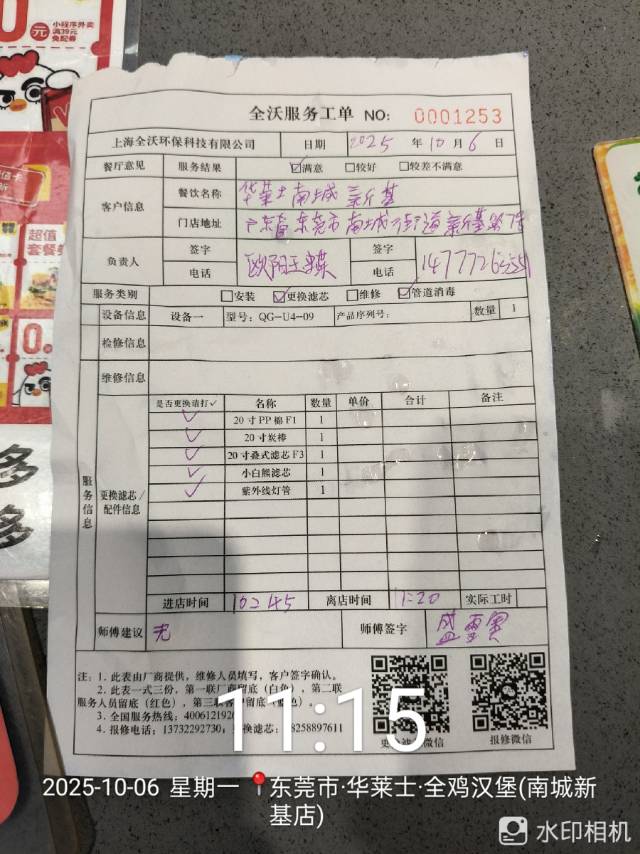 元
小程序外卖
满39元
免配券
超值
套餐券
0.
多
多
全沃服务工单 NO: 0001253
上海全沃环保科技有限公司 日期 2025 年 10 月 6 日
餐厅意见 服务结果 ☑满意 □较好 □较差不满意
客户信息 餐饮名称 华莱士南城新基
门店地址 广东省东莞市南城街道新基
负责人 签字 欧阳玉蝶 签字
电话 电话
服务类别 □安装 ☑更换滤芯 □维修 ☑管道消毒
设备信息 设备一 型号: QG-U4-09 产品序列号: 数量 1
检修信息
维修信息
服务信息 更换滤芯/配件信息
是否更换请打✓ 名称 数量 单价 合计 备注
✓ 20寸PP棉F1 1
✓ 20寸炭棒 1
✓ 20寸叠式滤芯F3 1
✓ 小白熊滤芯 1
✓ 紫外线灯管 1
进店时间 10:45 离店时间 11:20 实际工时
师傅建议 无 师傅签字
注: 1. 此表由厂商提供，维修人员填写，客户签字确认。
2. 此表一式三份，第一联厂商留底（白色），第二联
服务人员留底（红色），第三联客户留底
3. 全国服务热线: 4006121920
4. 报修电话: 13732292730, 更换滤芯: 18258897611
更换滤芯微信 报修微信
11:15
2025-10-06 星期一 东莞市·华莱士·全鸡汉堡(南城新
基店)
水印相机